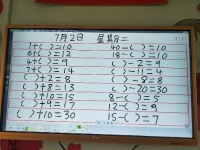 7月2日 星期二
1+( )=10 40-( )=10
6+( )=12 18-( )=10
4+( )=9 ( )-2=9
7+( )=14 ( )-11=4
( )+2=8 ( )-5=8
( )+8=13 ( )-20=30
( )+10=15 8-( )=5
( )+9=17 12-( )=9
( )+10=30 15-( )=7